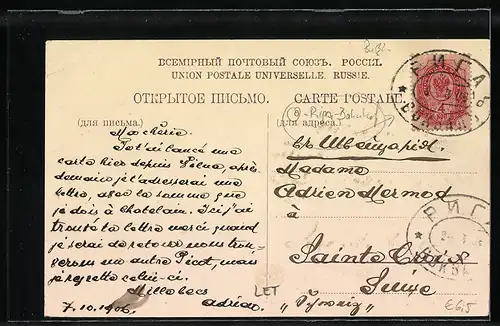 ВСЕМІРНЫЙ ПОЧТОВЫЙ СОЮЗЪ. РОССІЯ.
UNION POSTALE UNIVERSELLE. RUSSIE.
ОТКРЫТОЕ ПИСЬМО.
CARTE POSTALE.
(для письма.)
(для адреса.)
РИГА
ВОКЗАЛ
Ma chérie.
Je t'ai lancé une
carte hier depuis Vilna, après
demain je t'adresserai une
lettre, avec la somme que
je dois à Chatelain. Ici j'ai
trouvé ta lettre merci quand
je serai de retour nous
un autre Picot, mais
je regrette celui-ci.
Mille becs
Adrien
7.10.1906.
въ Швейцарію.
Madame
Adrien Mermod
à
Sainte Croix
Suisse
LET
€6,5
РИГА
ВОКЗ